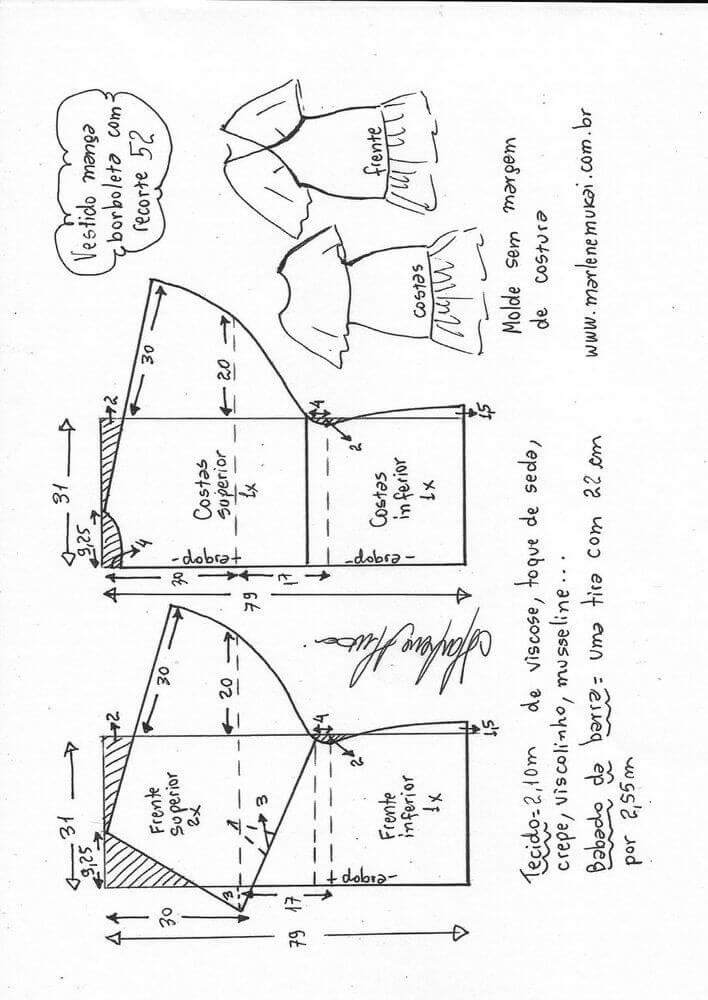 Vestido manga
borboleta com
recorte 52
frente
costas
Molde sem margem
de costura
www.marlenemukai.com.br
31
9,25
2
4
30
20
4
2
1,5
Costas
superior
1x
Costas
inferior
1x
-dobra-
-dobra-
30
17
79
31
9,25
2
30
20
4
2
1,5
Frente
superior
2x
3
3
Frente
inferior
1x
-dobra-
30
17
79
Tecido=2,10m de viscose, toque de seda,
crepe, viscolinho, musseline...
Babado da barra= uma tira com 22cm
por 2,55m